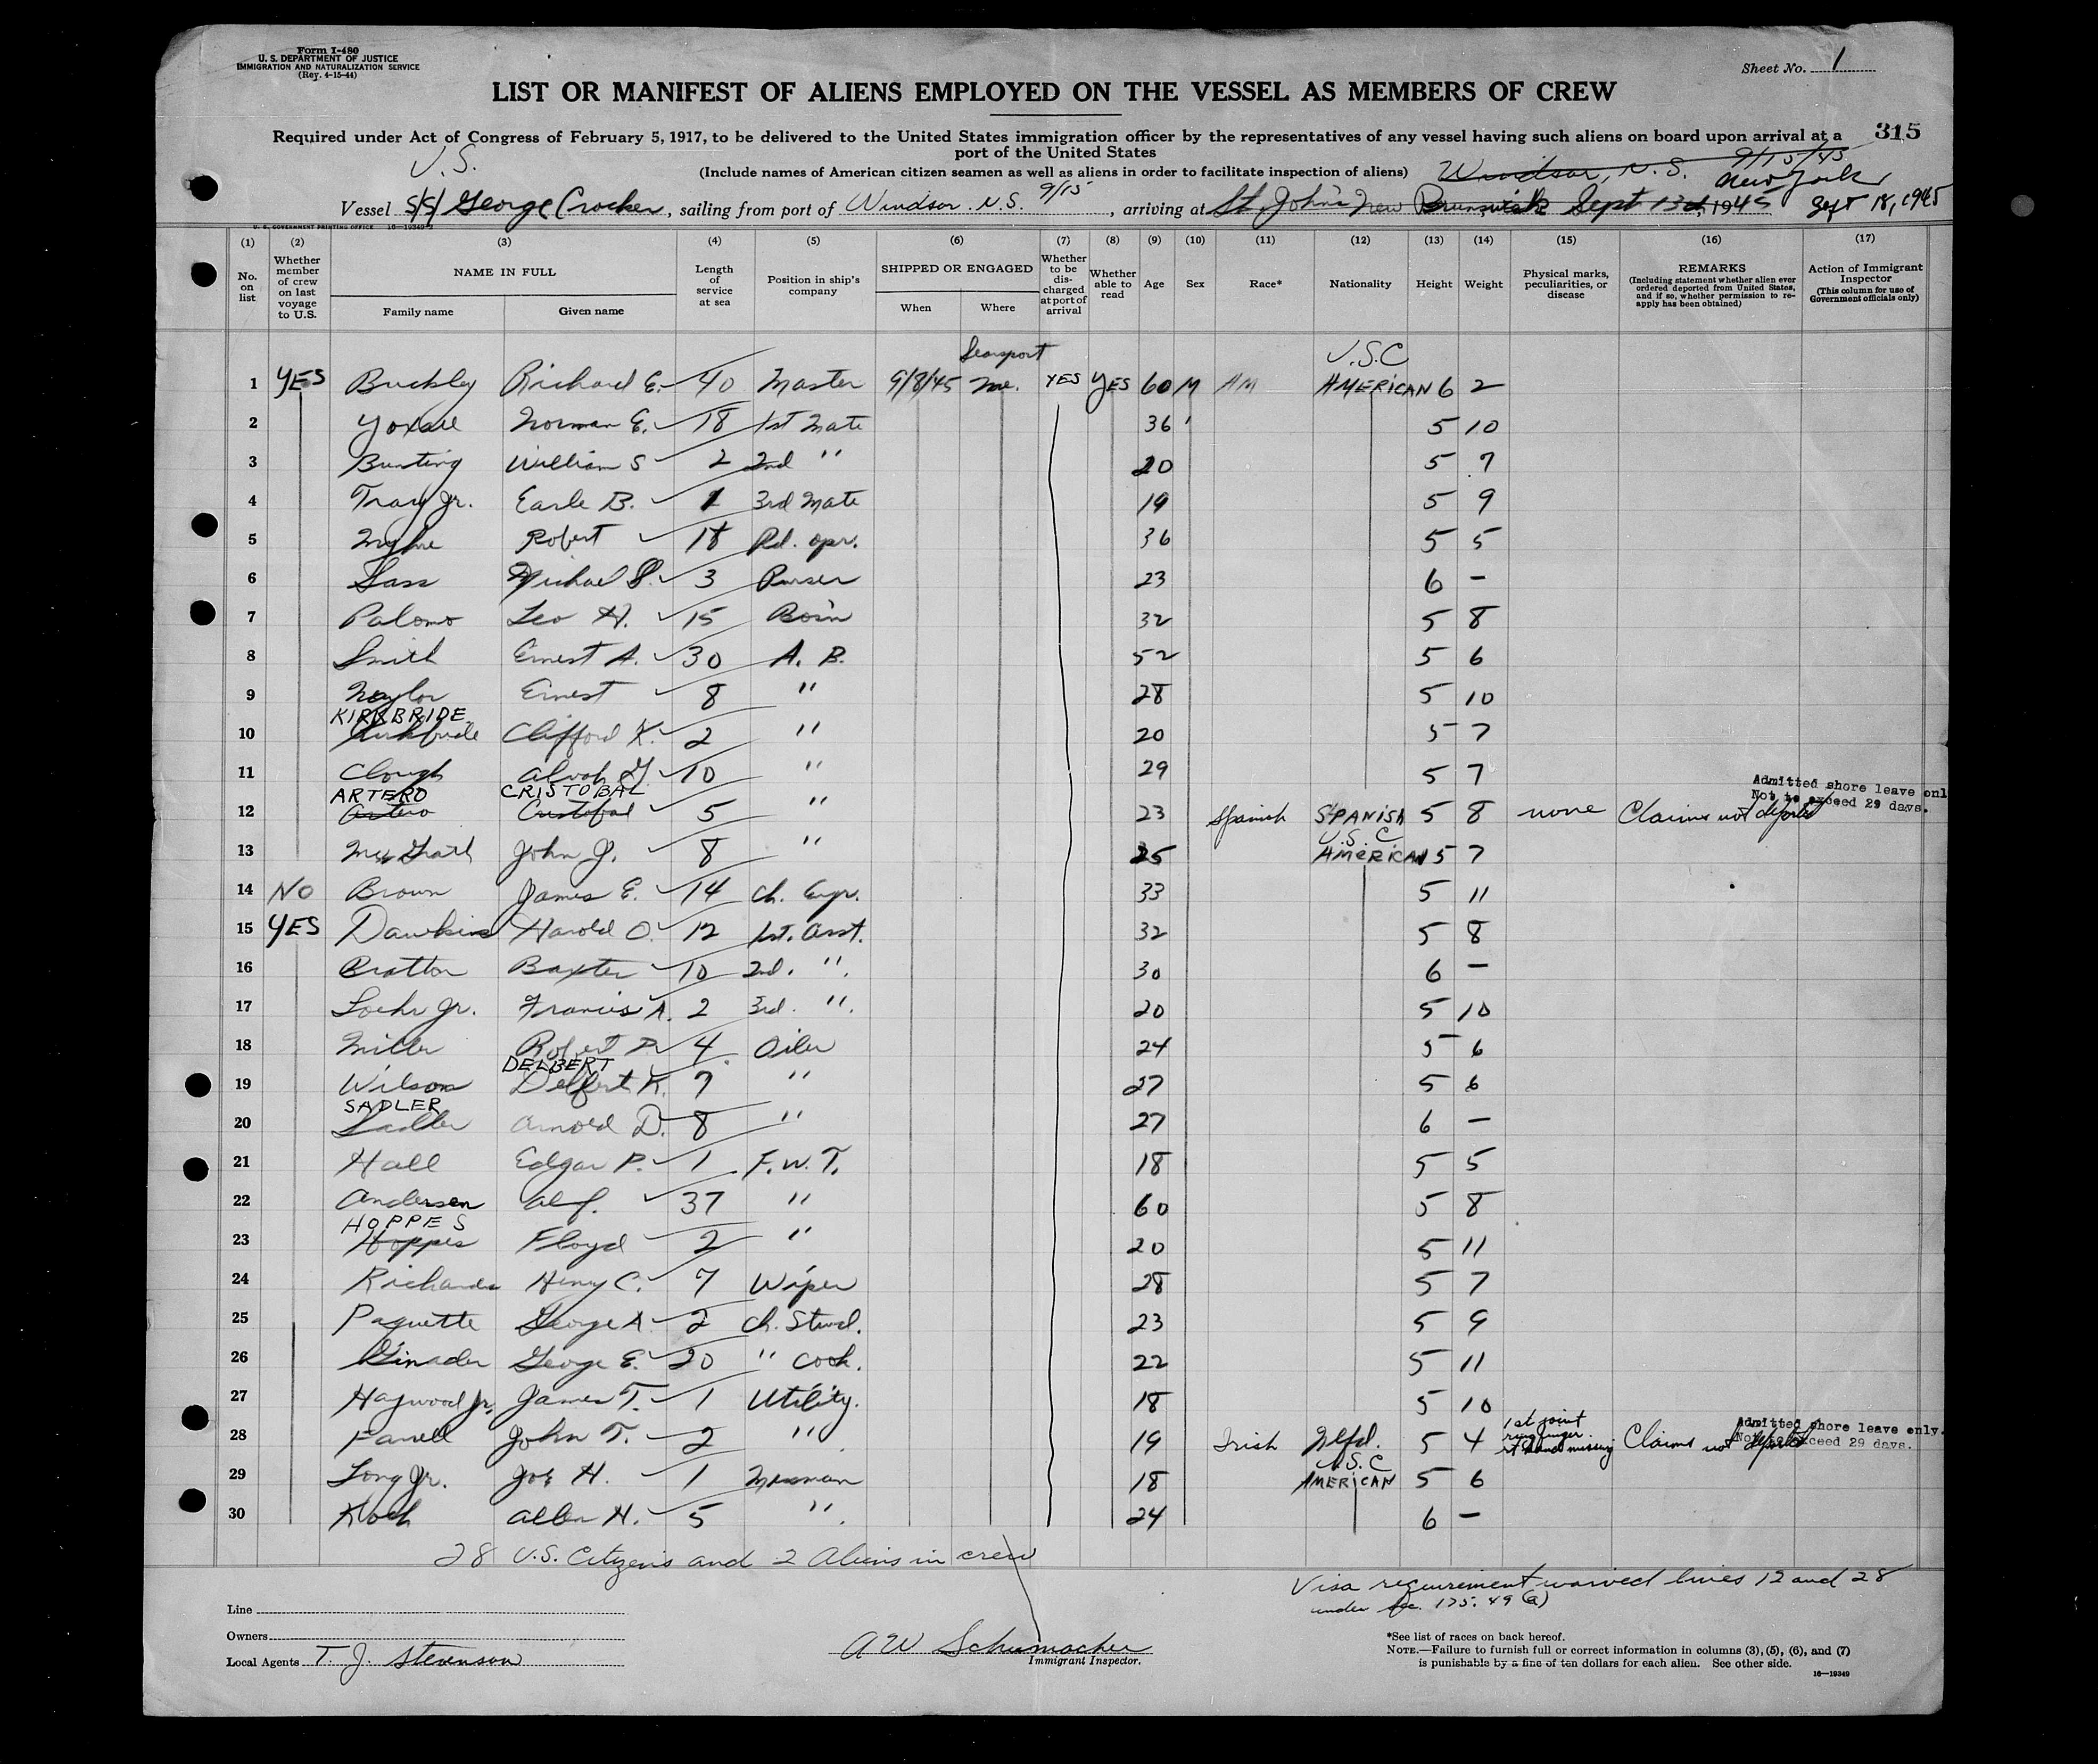 Form I-480
U. S. DEPARTMENT OF JUSTICE
IMMIGRATION AND NATURALIZATION SERVICE
(Rev. 4-15-44)
Sheet No. 1
LIST OR MANIFEST OF ALIENS EMPLOYED ON THE VESSEL AS MEMBERS OF CREW
315
Required under Act of Congress of February 5, 1917, to be delivered to the United States immigration officer by the representatives of any vessel having such aliens on board upon arrival at a
port of the United States
(Include names of American citizen seamen as well as aliens in order to facilitate inspection of aliens) Windsor, N.S. 9/15/45
U.S. New York
Vessel S/S George Crocker, sailing from port of Windsor N.S. 9/15, arriving at St. John's New Brunswick Sept 13d, 1945 Sept 18, 1945
U. S. GOVERNMENT PRINTING OFFICE 16-19349-2
(1) (2) (3) (4) (5) (6) (7) (8) (9) (10) (11) (12) (13) (14) (15) (16) (17)
No. on list
Whether member of crew on last voyage to U.S.
NAME IN FULL
Family name Given name
Length of service at sea
Position in ship's company
SHIPPED OR ENGAGED
When Where
Whether to be discharged at port of arrival
Whether able to read
Age
Sex
Race*
Nationality
Height
Weight
Physical marks, peculiarities, or disease
REMARKS
(Including statement whether alien ever ordered deported from United States, and if so, whether permission to reapply has been obtained)
Action of Immigrant Inspector
(This column for use of Government officials only)
Searsport U.S.C
1 YES Buckley Richard E. 40 Master 9/8/45 Me. YES YES 60 M AM AMERICAN 6 2
2 Norman E. 18 1st Mate 36 5 10
3 Bunting William S 2 2nd " 20 5 7
4 Jr. Earle B. 1 3rd Mate 19 5 9
5 Robert 18 Rd. opr. 36 5 5
6 Michael 3 Purser 23 6 -
7 Palomo Leo H. 15 Bos'n 32 5 8
8 Smith Ernest A. 30 A. B. 52 5 6
9 Naylor Ernest 8 " 28 5 10
KIRKBRIDE
10 Kirkbride Clifford K. 2 " 20 5 7
11 Clough Alvah 10 " 29 5 7
ARTERO CRISTOBAL Admitted shore leave only
Not to exceed 29 days.
12 Artero Cristobal 5 " 23 Spanish SPANISH 5 8 none Claims not deported
U.S.C
13 McGrath John J. 8 " 25 AMERICAN 5 7
14 NO Brown James E. 14 Ch. Engr. 33 5 11
15 YES Dawkins Harold O. 12 1st. Asst. 32 5 8
16 Bratton Baxter 10 2nd. " 30 6 -
17 Loehr Jr. Francis A. 2 3rd. " 20 5 10
18 Miller Robert 4 Oiler 24 5 6
DELBERT
19 Wilson Delbert K. 7 " 27 5 6
SADLER
20 Sadler Arnold D. 8 " 27 6 -
21 Hall Edgar P. 1 F.W.T. 18 5 5
22 Andersen Alf. 37 " 60 5 8
HOPPES
23 Hoppes Floyd 2 " 20 5 11
24 Richards Henry C. 7 Wiper 28 5 7
25 Paquette George A. 2 Ch. Stwd. 23 5 9
26 Ginader George E. 20 " Cook. 22 5 11
27 Haywood Jr. James T. 1 Utility. 18 5 10
1st joint Admitted shore leave only.
ring finger Not to exceed 29 days.
28 Farrell John T. 2 " 19 Irish Nfld. 5 4 rt hand missing Claims not deported
U.S.C
29 Long Jr. Joe H. 1 Messman 18 AMERICAN 5 6
30 Koch Allen H. 5 " 24 6 -
28 U.S. Citizens and 2 Aliens in crew
Visa requirement waived lines 12 and 28
under Sec. 175.49 (a)
Line
Owners
Local Agents T. J. Stevenson
A W Schumacher
Immigrant Inspector.
*See list of races on back hereof.
NOTE.—Failure to furnish full or correct information in columns (3), (5), (6), and (7)
is punishable by a fine of ten dollars for each alien. See other side.
16—19349